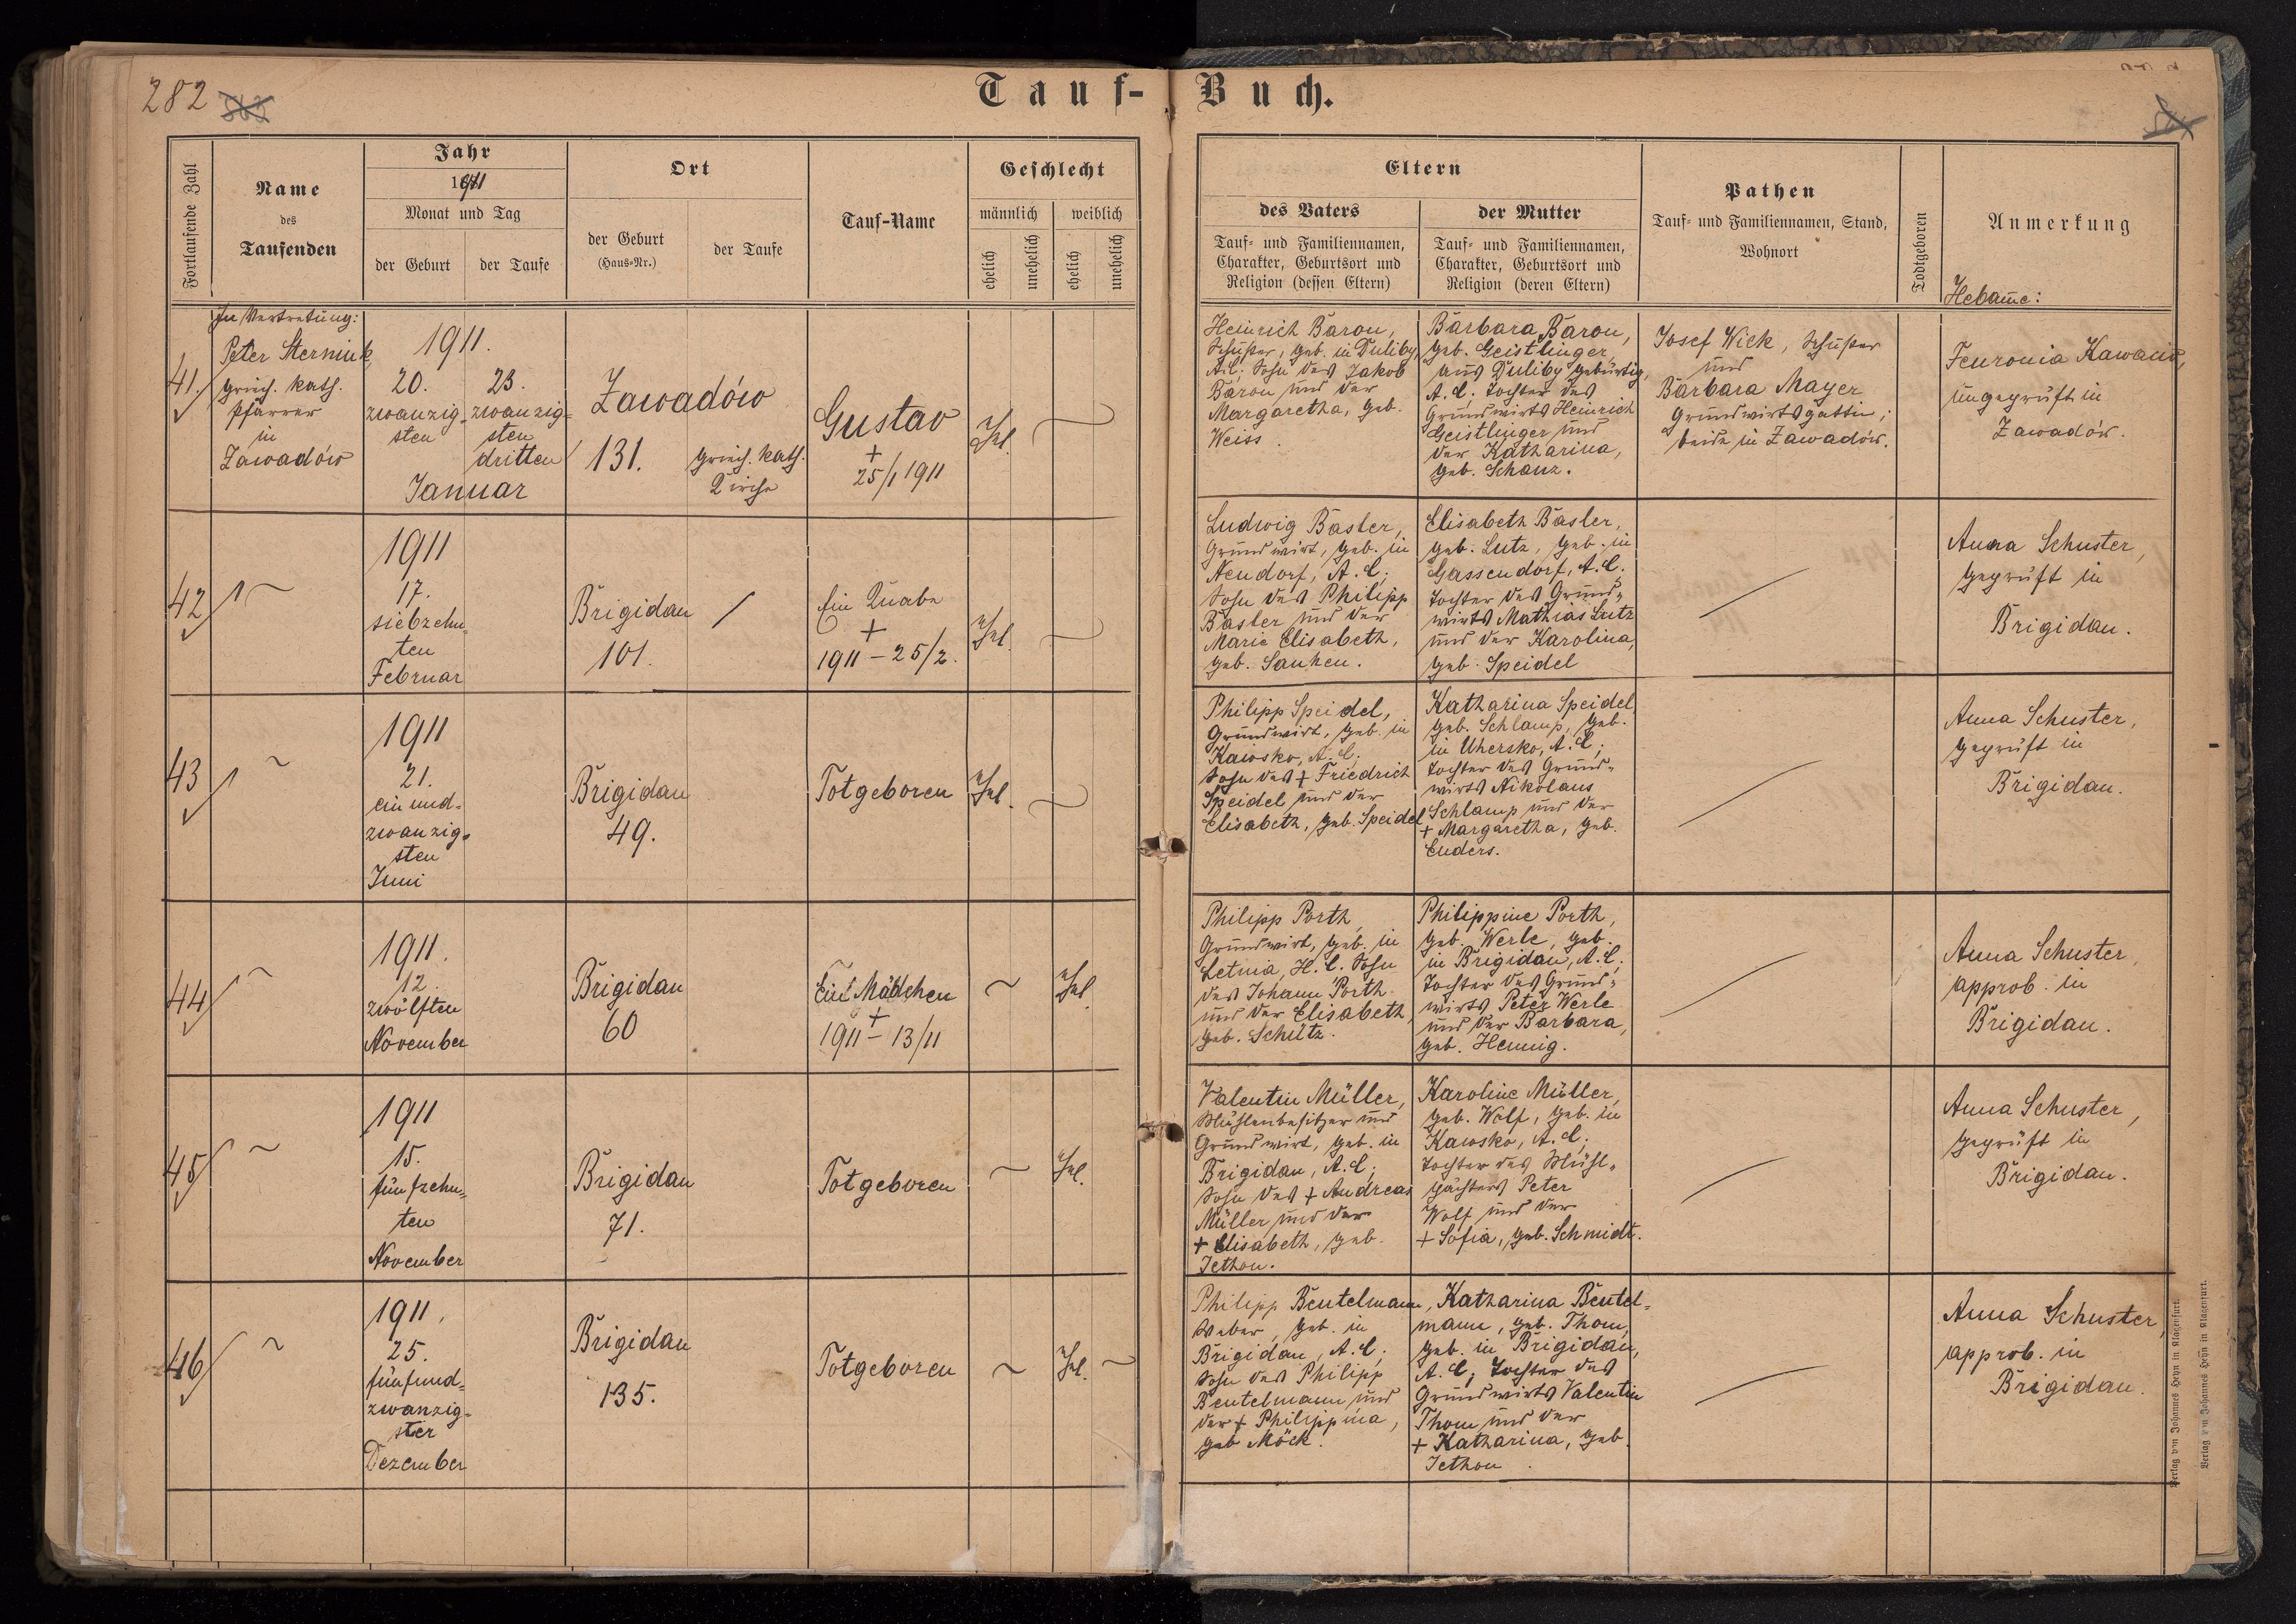 282
Tauf-Buch.
Fortlaufende Zahl
Name
des
Taufenden
Jahr
1911
Monat und Tag
der Geburt
der Taufe
Ort
der Geburt
(Haus-Nr.)
der Taufe
Tauf-Name
Geschlecht
männlich
weiblich
ehelich
unehelich
ehelich
unehelich
Eltern
des Vaters
Tauf- und Familiennamen,
Charakter, Geburtsort und
Religion (dessen Eltern)
der Mutter
Tauf- und Familiennamen,
Charakter, Geburtsort und
Religion (deren Eltern)
Pathen
Tauf- und Familiennamen, Stand,
Wohnort
Todtgeboren
Anmerkung
Hebame:
41.
In Vertretung:
Peter Sterniuk,
griech. kath.
Pfarrer
in
Zawadów
1911.
20.
zwanzig-
sten
23.
zwanzig-
sten
dritten
Januar
Zawadów
131.
griech. kath.
Kirche
Gustav
+
25/1 1911
Ehel.
Heinrich Baron,
Schuster, geb. in Duliby,
A.C; Sohn des Jakob
Baron und der
Margaretha, geb.
Weiss.
Barbara Baron,
geb. Geistlinger,
aus Duliby gebürtig,
A.C. Tochter des
Grundwirts Heinrich
Geistlinger und
der Katharina,
geb. Schanz.
Josef Wick, Schuster
und
Barbara Mayer
Grundwirtsgattin;
beide in Zawadów.
ungeprüft in
Zawadów.
42
1911
17.
siebzehn-
ten
Februar
Brigidau
101.
Ein Knabe
+
1911 - 25/2.
Ehel.
Ludwig Basler,
Grundwirt, geb. in
Neudorf, A.C;
Sohn des Philipp
Basler und der
Marie Elisabeth,
geb. Sauken.
Elisabeth Basler,
geb. Lutz, geb. in
Gassendorf, A.C.
Tochter des Grund-
wirts Mathias Lutz
und der Karolina,
geb. Speidel
Anna Schuster,
geprüft in
Brigidau.
43
1911
21.
ein und-
zwanzig-
sten
Juni
Brigidau
49.
Totgeboren
Ehel.
Philipp Speidel,
Grundwirt, geb. in
Kawsko, A.C;
Sohn des + Friedrich
Speidel und der
Elisabeth, geb. Speidel
Katharina Speidel
geb. Schlamp, geb.
in Uhersko, A.C;
Tochter des Grund-
wirts Nikolaus
Schlamp und der
+ Margaretha, geb.
Enders.
Anna Schuster,
geprüft in
Brigidau.
44
1911.
12.
zwölften
November
Brigidau
60
Ein Mädchen
+
1911 - 13/11
Ehel.
Philipp Porth,
Grundwirt, geb. in
Letnia, H.C. Sohn
des Johann Porth
und der Elisabeth,
geb. Schütz.
Philippine Porth,
geb. Werle, geb.
in Brigidau, A.C;
Tochter des Grund-
wirts Peter Werle
und der Barbara,
geb. Hennig.
Anna Schuster,
approb. in
Brigidau.
45
1911
15.
fünfzehn-
ten
November
Brigidau
71.
Totgeboren
Ehel.
Valentin Müller,
Mühlenbesitzer und
Grundwirt, geb. in
Brigidau, A.C;
Sohn des + Andreas
Müller und der
+ Elisabeth, geb.
Jethon.
Karoline Müller,
geb. Wolf, geb. in
Kawsko, A.C;
Tochter des Mühl-
pächters Peter
Wolf und der
+ Sofia, geb. Schmidt.
Anna Schuster,
geprüft in
Brigidau.
46
1911.
25.
fünfund-
zwanzig-
ster
Dezember
Brigidau
135.
Totgeboren
Ehel.
Philipp Beutelmann,
Weber, geb. in
Brigidau, A.C;
Sohn des Philipp
Beutelmann und
der + Philippina,
geb Möck.
Katharina Beutel-
mann, geb. Thom,
geb. in Brigidau,
A.C; Tochter des
Grundwirts Valentin
Thom und der
+ Katharina, geb.
Jethon.
Anna Schuster,
approb. in
Brigidau.
Verlag von Johannes Heyn in Klagenfurt.
Verlag von Johannes Heyn in Klagenfurt.